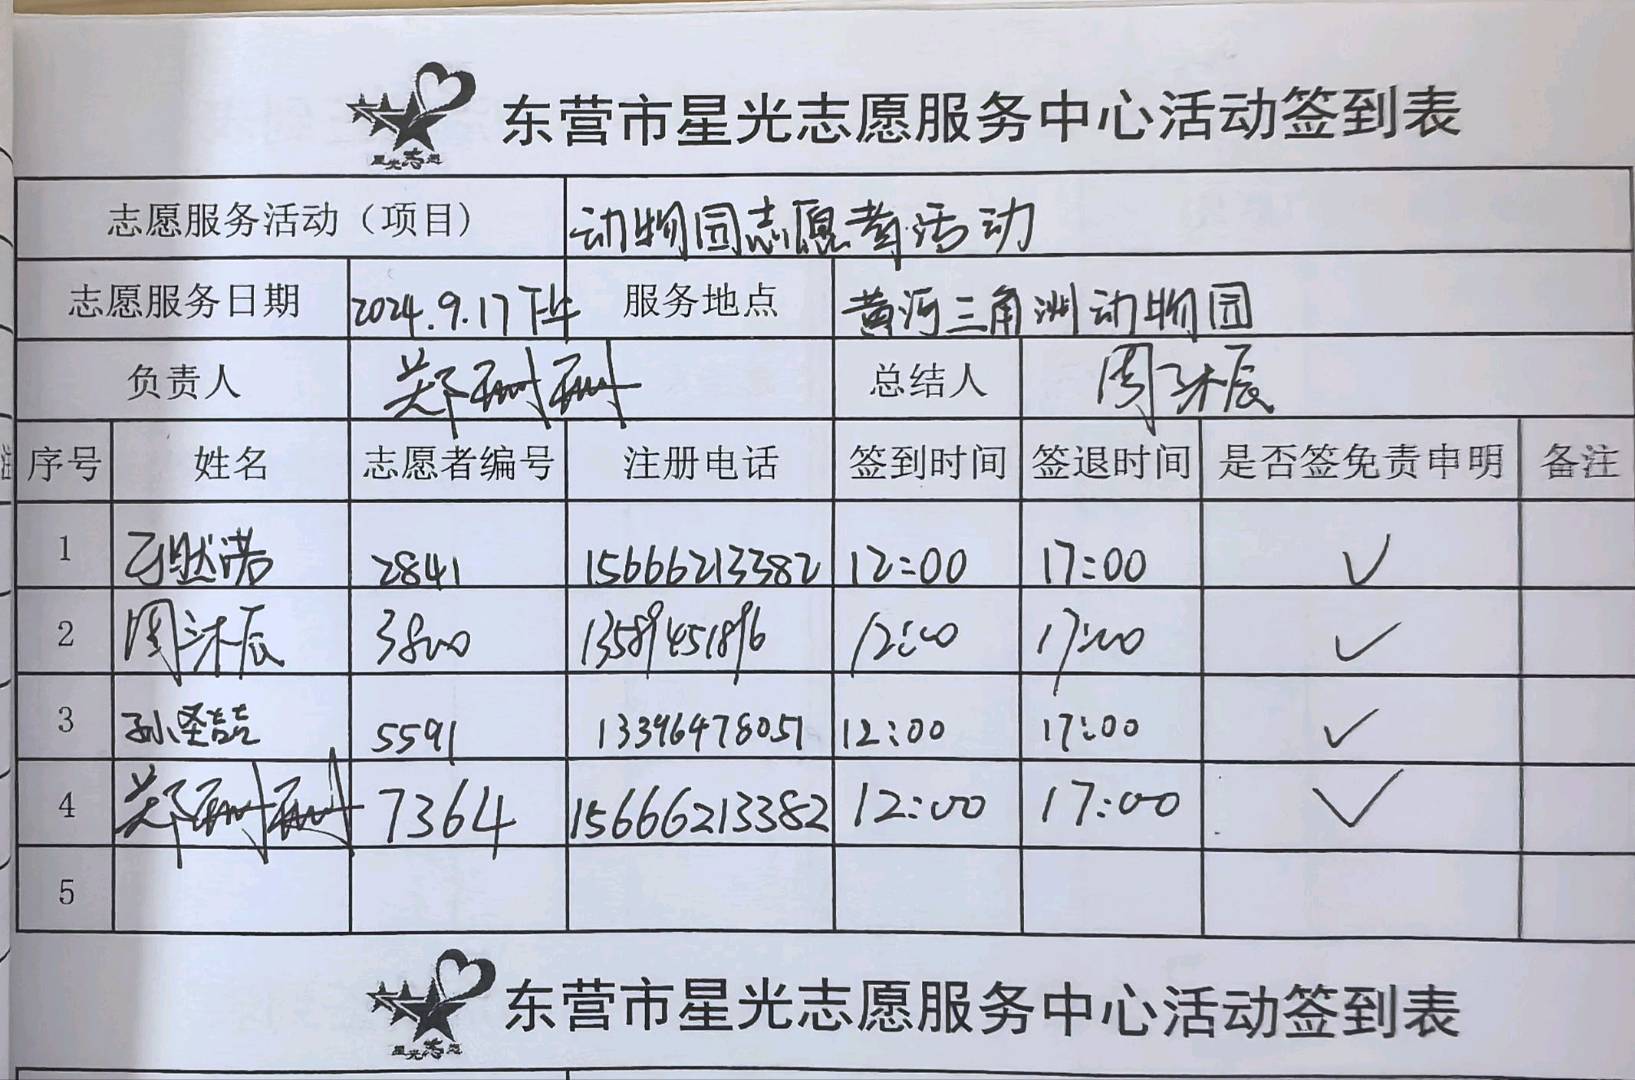 东营市星光志愿服务中心活动签到表
星光志愿
志愿服务活动（项目） 动物园志愿者活动
志愿服务日期 2024.9.17下午 服务地点 黄河三角洲动物园
负责人 郑珊珊 总结人 周沐辰
序号 姓名 志愿者编号 注册电话 签到时间 签退时间 是否签免责申明 备注
1 2841 15666213382 12:00 17:00 ✓
2 周沐辰 3800 13589451896 12:00 17:00 ✓
3 孙圣喆 5591 13396478051 12:00 17:00 ✓
4 郑珊珊 7364 15666213382 12:00 17:00 ✓
5
东营市星光志愿服务中心活动签到表
星光志愿